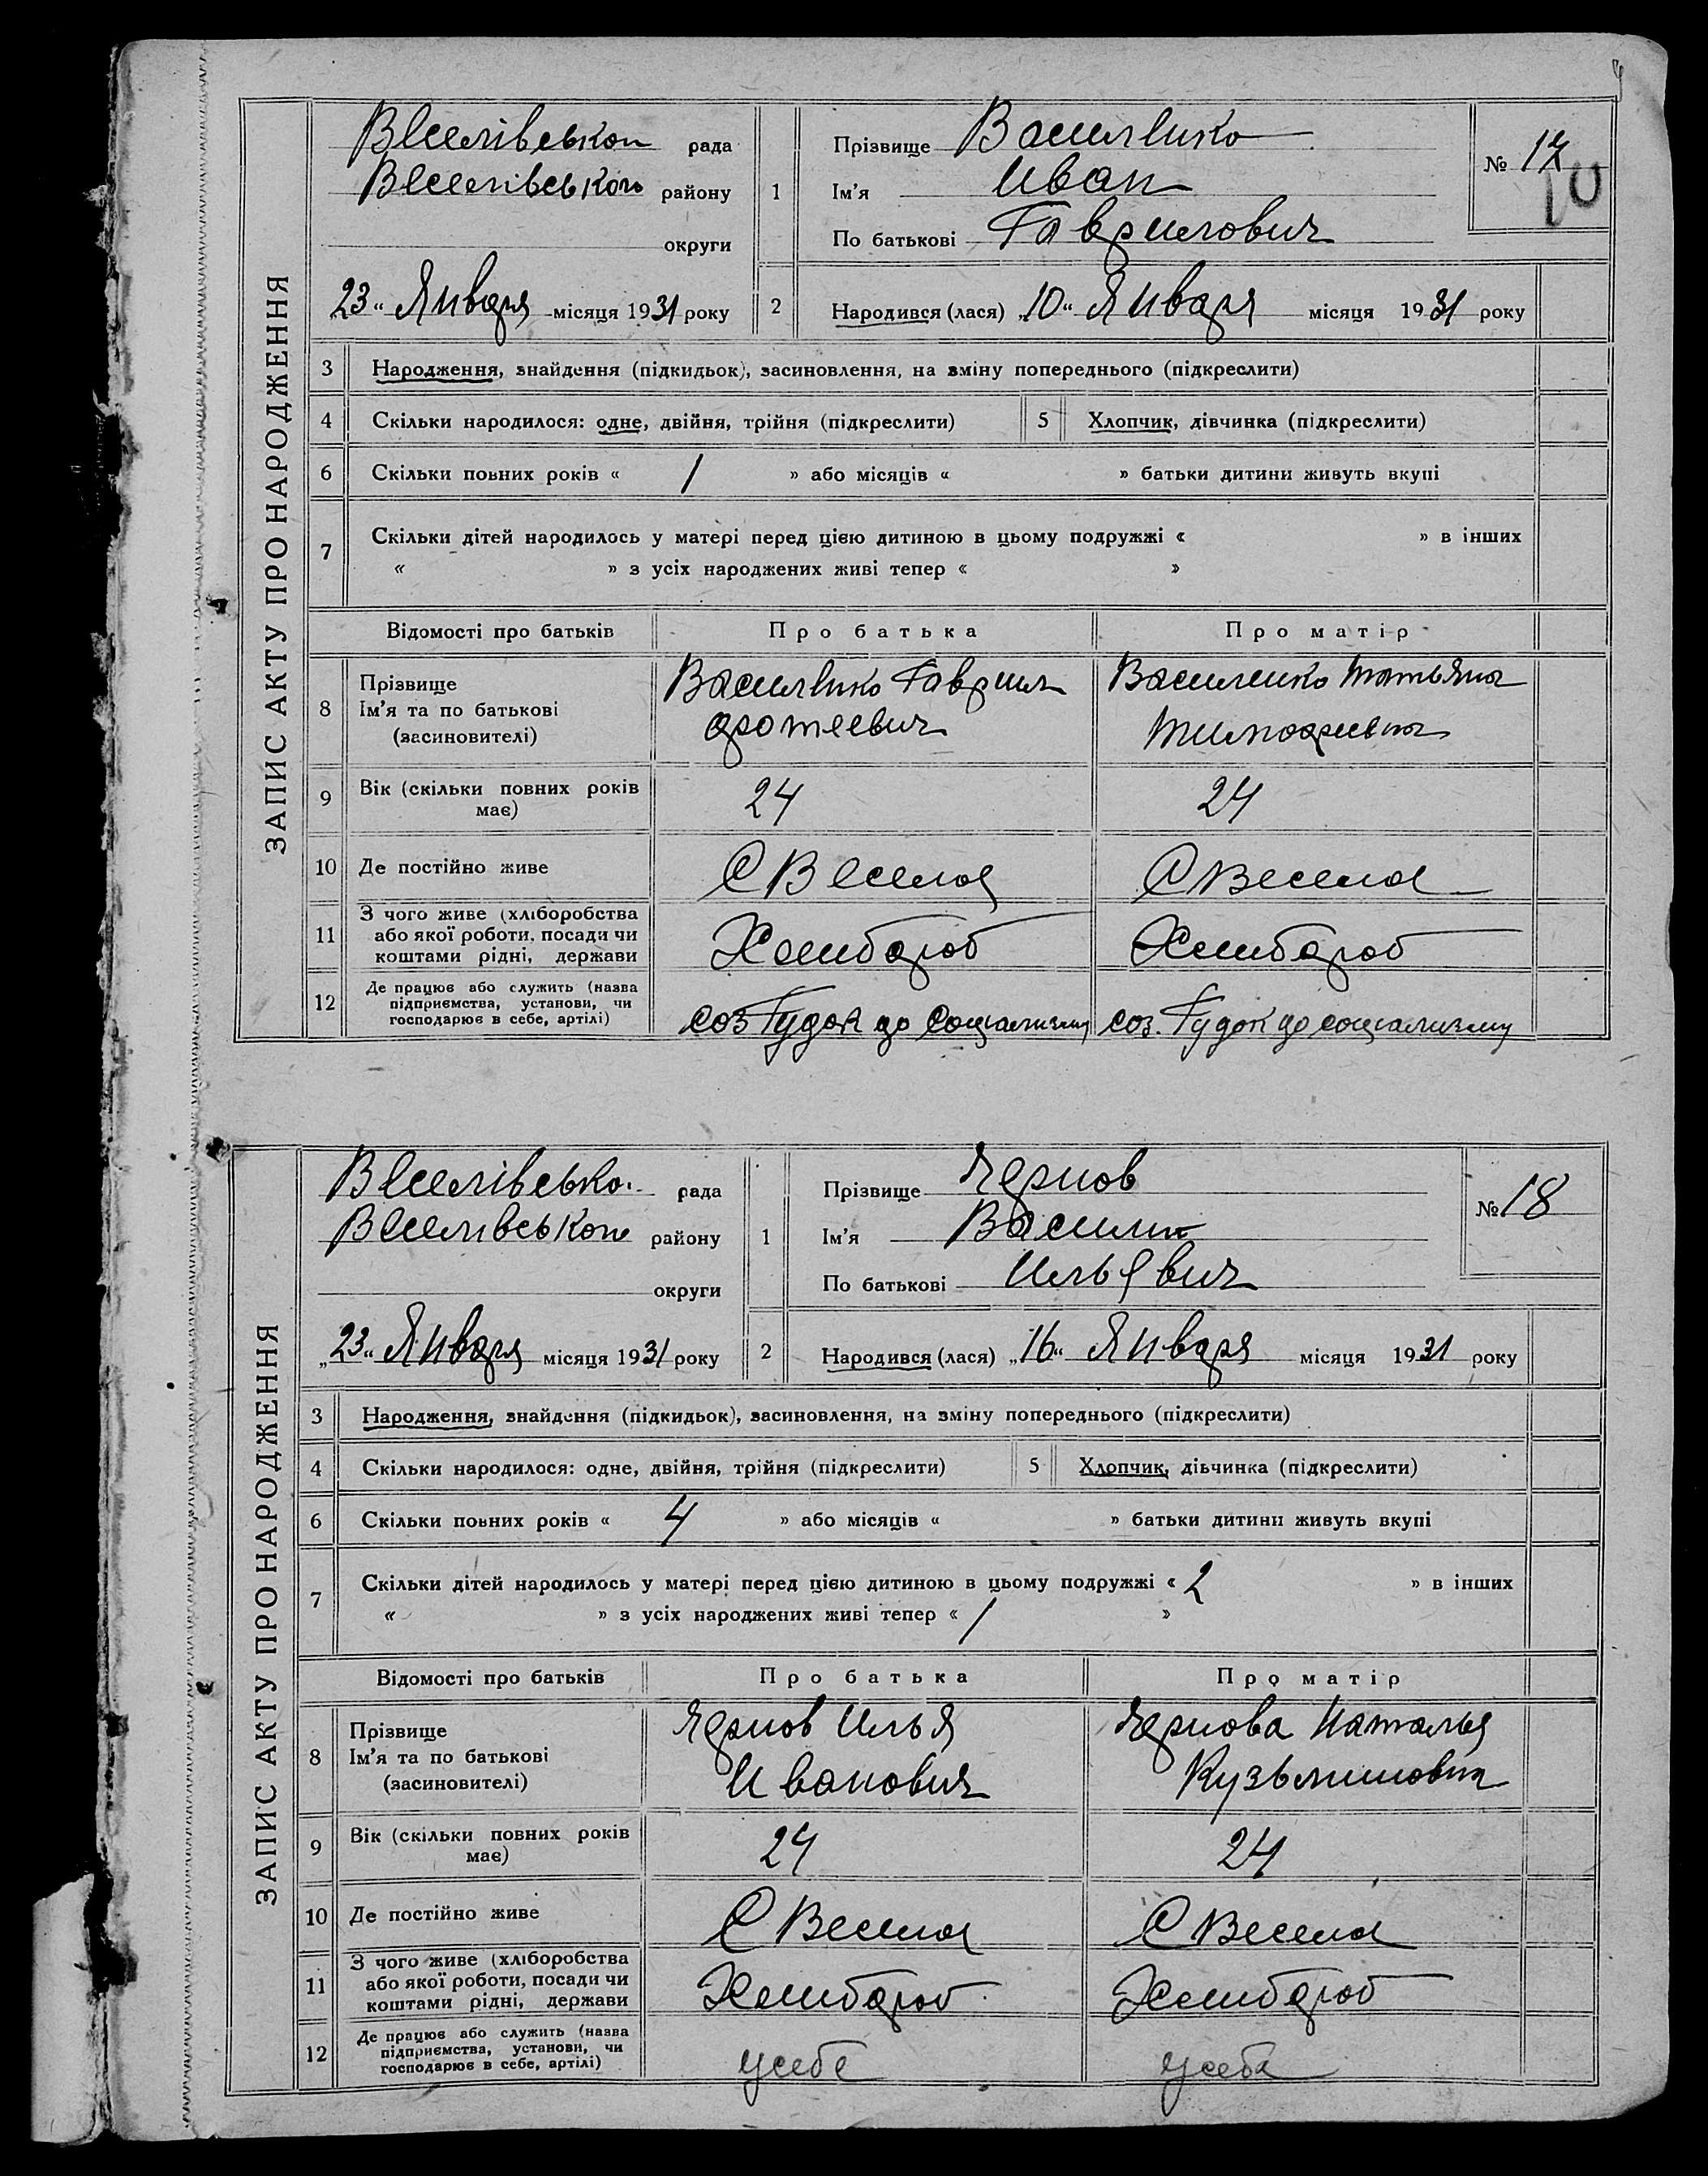 ЗАПИС АКТУ ПРО НАРОДЖЕННЯ
Веселівської рада
Веселівської району
округи
23 " Января місяця 1931 року
1 Прізвище Василенко
Ім'я Иван
По батькові Гаврилович
№ 17
2 Народився (лася) „10" Января місяця 1931 року
3 Народження, знайдення (підкидьок), засиновлення, на зміну попереднього (підкреслити)
4 Скільки народилося: одне, двійня, трійня (підкреслити) 5 Хлопчик, дівчинка (підкреслити)
6 Скільки повних років « 1 » або місяців « » батьки дитини живуть вкупі
7 Скільки дітей народилось у матері перед цією дитиною в цьому подружжі « » в інших
« » з усіх народжених живі тепер « »
Відомості про батьків Про батька Про матір
8 Прізвище
Ім'я та по батькові
(засиновителі)
Василенко Гаврил
Фотеевич
Василенко Татьяна
Тимофеевна
9 Вік (скільки повних років
має)
24 24
10 Де постійно живе С Весела С Весела
11 З чого живе (хліборобства
або якої роботи, посади чи
коштами рідні, держави
Хлибороб Хлибороб
12 Де працює або служить (назва
підприємства, установи, чи
господарює в себе, артілі)
соз Гудок до социализму соз. Гудок до социализму
ЗАПИС АКТУ ПРО НАРОДЖЕННЯ
Веселівської рада
Веселівської району
округи
„23" Января місяця 1931 року
1 Прізвище Чернов
Ім'я Василий
По батькові Ильевич
№ 18
2 Народився (лася) „16" Января місяця 1931 року
3 Народження, знайдення (підкидьок), засиновлення, на зміну попереднього (підкреслити)
4 Скільки народилося: одне, двійня, трійня (підкреслити) 5 Хлопчик, дівчинка (підкреслити)
6 Скільки повних років « 4 » або місяців « » батьки дитини живуть вкупі
7 Скільки дітей народилось у матері перед цією дитиною в цьому подружжі « 2 » в інших
« » з усіх народжених живі тепер « 1 »
Відомості про батьків Про батька Про матір
8 Прізвище
Ім'я та по батькові
(засиновителі)
Чернов Илья
Иванович
Чернова Наталья
Кузьминовна
9 Вік (скільки повних років
має)
24 24
10 Де постійно живе С Весела С Весела
11 З чого живе (хліборобства
або якої роботи, посади чи
коштами рідні, держави
Хлибороб Хлибороб
12 Де працює або служить (назва
підприємства, установи, чи
господарює в себе, артілі)
у себе у себе